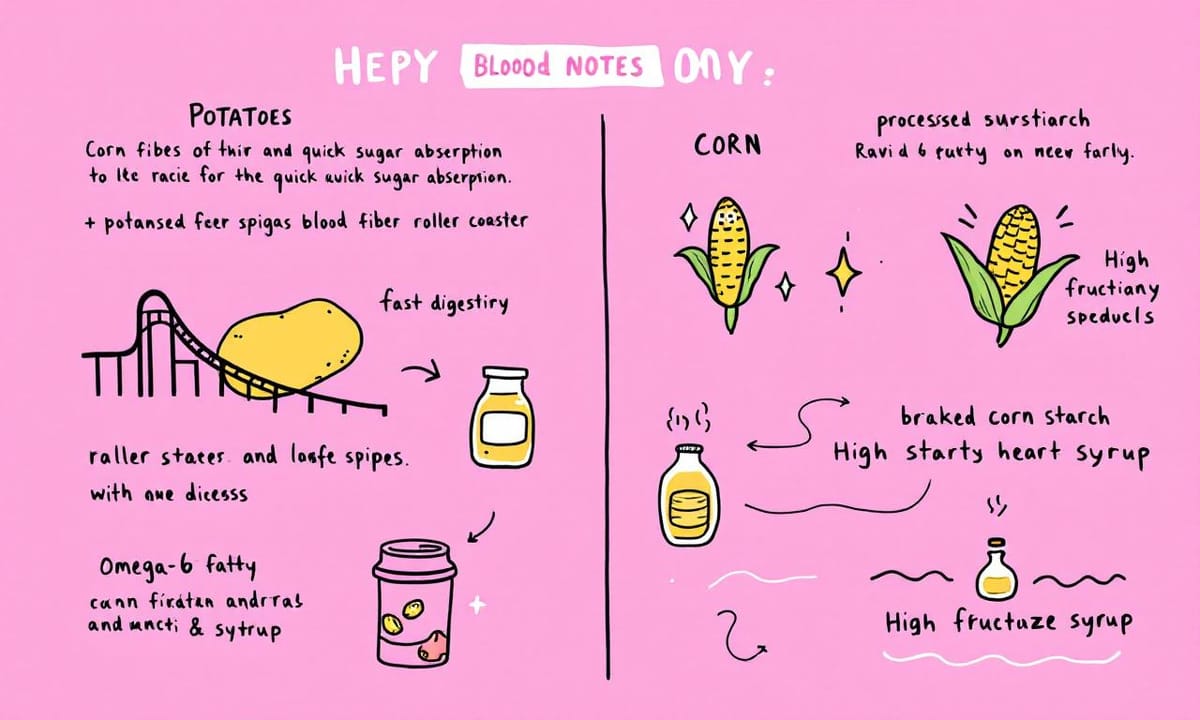 HEPY BLOOOD NOTES ONY:
POTATOES
Corn fibes of thir and quick sugar abserption
to lte racie for the quick quick sugar abserption.
+ potansed feer spigas blood fiber roller coaster
fast digestiry
raller stater. and losfe spipes.
with one dicesss
Omega-6 fatty
cann firatan andrras
and uncti & sytrup
CORN
processed surstiarch
Ravi d 6 futty on neew farly.
High
fructiany
speducls
braked corn starch
High starty heart syrup
High fructuze syrup